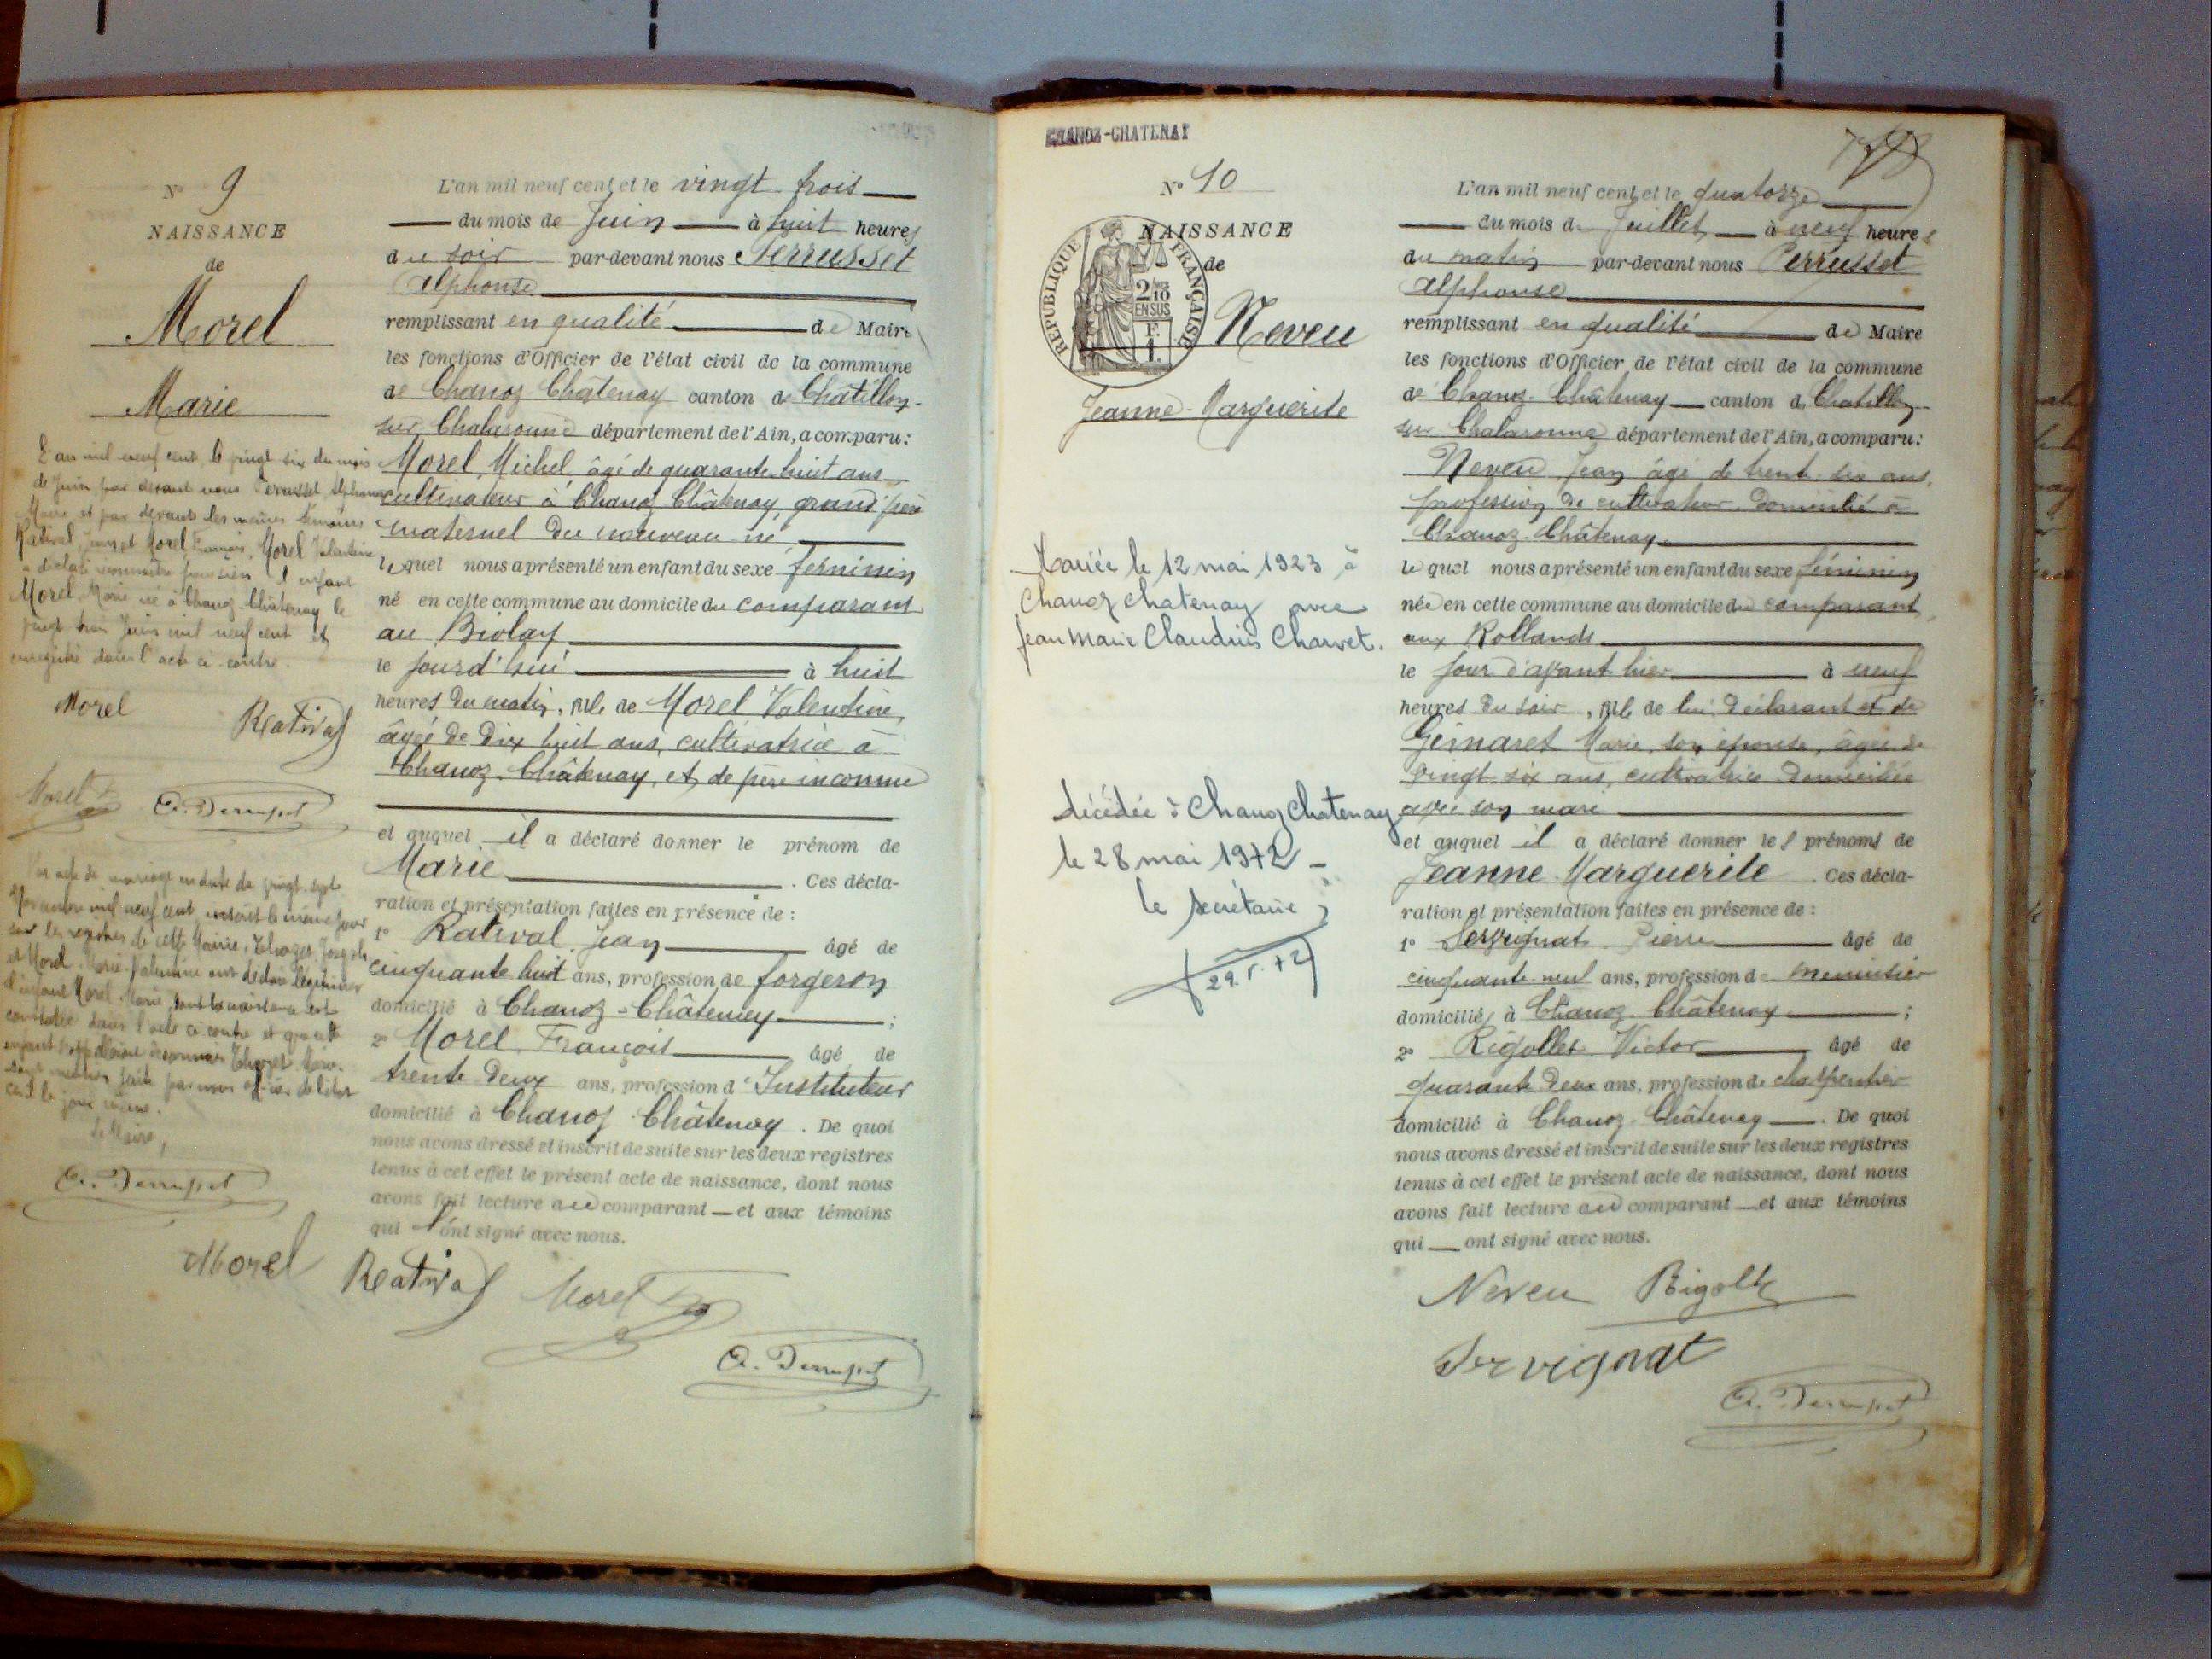 N° 9
NAISSANCE
de
Morel
Marie
L'an mil neuf cent, le vingt six du mois
de Juin, par devant nous Perrusset Alphonse
Maire et par devant les mêmes témoins
Rativat Jean et Morel François, Morel Valentine
a déclaré reconnaître pour sien l'enfant
Morel Marie né à Chanoz-Châtenay le
vingt trois Juin mil neuf cent et
enregistré dans l'acte ci-contre.
Morel Rativat
Morel A. Perrusset
Par acte de mariage en date du vingt-sept
mil neuf cent inscrit le même jour
sur les registres de cette Mairie, Joseph
et Morel Marie Valentine ont déclaré légitimer
l'enfant Morel Marie, dont la naissance est
constatée dans l'acte ci-contre et que cet
enfant
faite par nous officier de l'état
civil le jour même.
Le Maire,
A. Perrusset
L'an mil neuf cent et le vingt trois
du mois de Juin à huit heures
du soir par-devant nous Perrusset
Alphonse
remplissant en qualité de Maire
les fonctions d'Officier de l'état civil de la commune
de Chanoz Châtenay canton de Châtillon-
sur Chalaronne département de l'Ain, a comparu:
Morel Michel âgé de quarante huit ans
cultivateur à Chanoz Châtenay, grand'père
maternel du nouveau né,
lequel nous a présenté un enfant du sexe féminin
né en cette commune au domicile du comparant
au Biolay
le jourd'hui à huit
heures du matin, fille de Morel Valentine,
âgée de dix huit ans, cultivatrice à
Chanoz-Châtenay, et de père inconnu
et auquel il a déclaré donner le prénom de
Marie . Ces décla-
ration et présentation faites en présence de :
1° Rativat Jean âgé de
cinquante huit ans, profession de forgeron
domicilié à Chanoz-Châtenay ;
2° Morel François âgé de
trente deux ans, profession d'Instituteur
domicilié à Chanoz Châtenay . De quoi
nous avons dressé et inscrit de suite sur les deux registres
tenus à cet effet le présent acte de naissance, dont nous
avons fait lecture au comparant et aux témoins
qui ont signé avec nous.
Morel Rativat Morel
A. Perrusset
CHANOZ-CHATENAY
N° 10
NAISSANCE
de
REPUBLIQUE FRANÇAISE
2/10
EN SUS
Neveu
Jeanne-Marguerite
Mariée le 12 mai 1923 à
Chanoz Chatenay avec
Jean Marie Claudius Charvet.
décédée à Chanoz Chatenay
le 28 mai 1972 -
le secrétaire,
29.5.72
L'an mil neuf cent et le quatorze
du mois de Juillet à neuf heures
du matin par-devant nous Perrusset
Alphonse
remplissant en qualité de Maire
les fonctions d'Officier de l'état civil de la commune
de Chanoz-Châtenay canton de Chatillon-
sur Chalaronne département de l'Ain, a comparu:
Neveu Jean âgé de trente six ans,
profession de cultivateur domicilié à
Chanoz-Châtenay
lequel nous a présenté un enfant du sexe féminin
née en cette commune au domicile du comparant,
aux Rollands
le jour d'avant hier à neuf
heures du soir, fille de lui, déclarant et de
Marie, son épouse, âgée de
vingt six ans, cultivatrice domiciliée
avec son mari
et auquel il a déclaré donner les prénoms de
Jeanne Marguerite . Ces décla-
ration et présentation faites en présence de :
1° Servignat Pierre âgé de
cinquante neuf ans, profession de menuisier
domicilié à Chanoz Châtenay ;
2° Rigollet Victor âgé de
quarante deux ans, profession de charpentier
domicilié à Chanoz-Châtenay . De quoi
nous avons dressé et inscrit de suite sur les deux registres
tenus à cet effet le présent acte de naissance, dont nous
avons fait lecture au comparant et aux témoins
qui ont signé avec nous.
Neveu Rigollet
Servignat
A. Perrusset